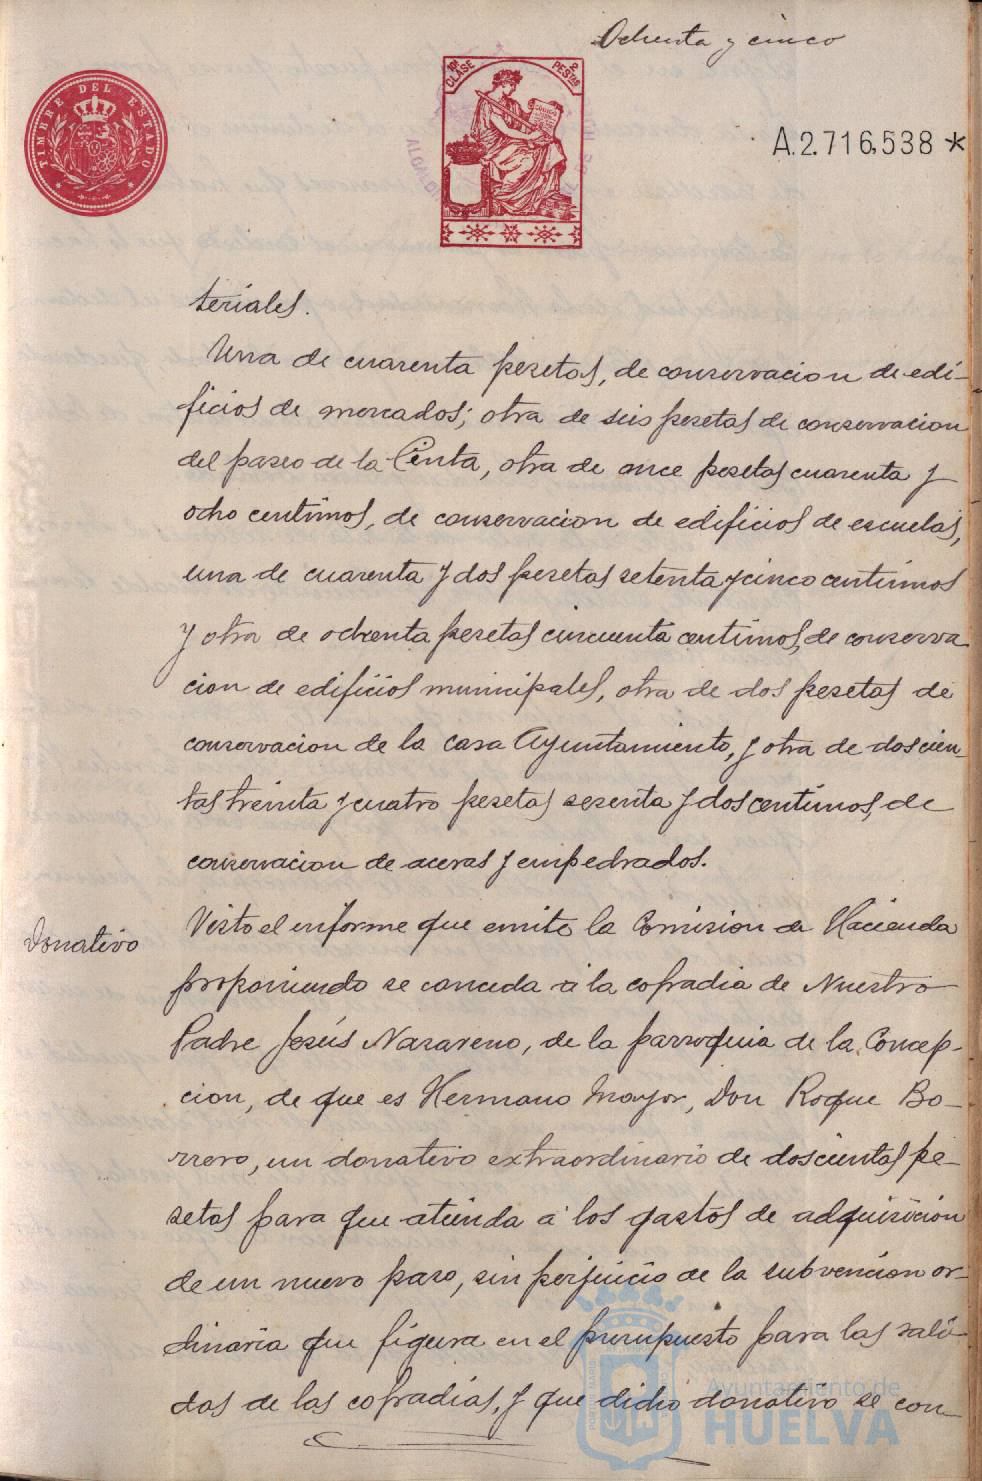 Ochenta y cinco
TIMBRE DEL ESTADO
10ª CLASE
2 PESTAS
A.2.716,538 *
teriales.
Una de cuarenta pesetas, de conservacion de edi-
ficios de mercados; otra de seis pesetas de conservacion
del paseo de la Cinta, otra de once pesetas cuarenta y
ocho centimos, de conservacion de edificios de escuelas,
una de cuarenta y dos pesetas setenta y cinco centimos
y otra de ochenta pesetas cincuenta centimos, de conserva
cion de edificios municipales, otra de dos pesetas de
conservacion de la casa Ayuntamiento, y otra de doscien-
tas treinta y cuatro pesetas sesenta y dos centimos, de
conservacion de aceras y empedrados.
Donativo
Visto el informe que emite la Comision de Hacienda
proponiendo se conceda á la cofradia de Nuestro
Padre Jesús Nazareno, de la parroquia de la Concep-
cion, de que es Hermano Mayor, Don Roque Bo-
rrero, un donativo extraordinario de doscientas pe-
setas para que atienda á los gastos de adquisicion
de un nuevo paso, sin perjuicio de la subvencion or-
dinaria que figura en el presupuesto para las sali-
das de las cofradias, y que dicho donativo se con-
Ayuntamiento de
HUELVA